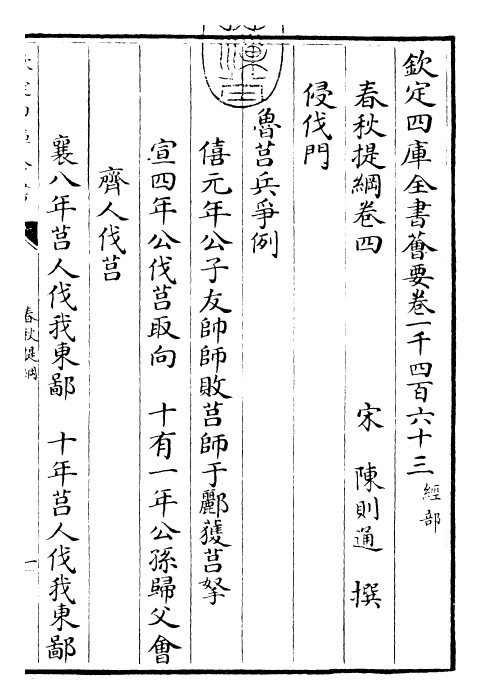 欽定四庫全書薈要卷一千四百六十三 經部
春秋提綱卷四 宋 陳則通 撰
侵伐門
魯莒兵爭例
僖元年公子友帥師敗莒師于酈獲莒拏
宣四年公伐莒取向 十有一年公孫歸父會
齊人伐莒
襄八年莒人伐我東鄙 十年莒人伐我東鄙
春秋提綱
一